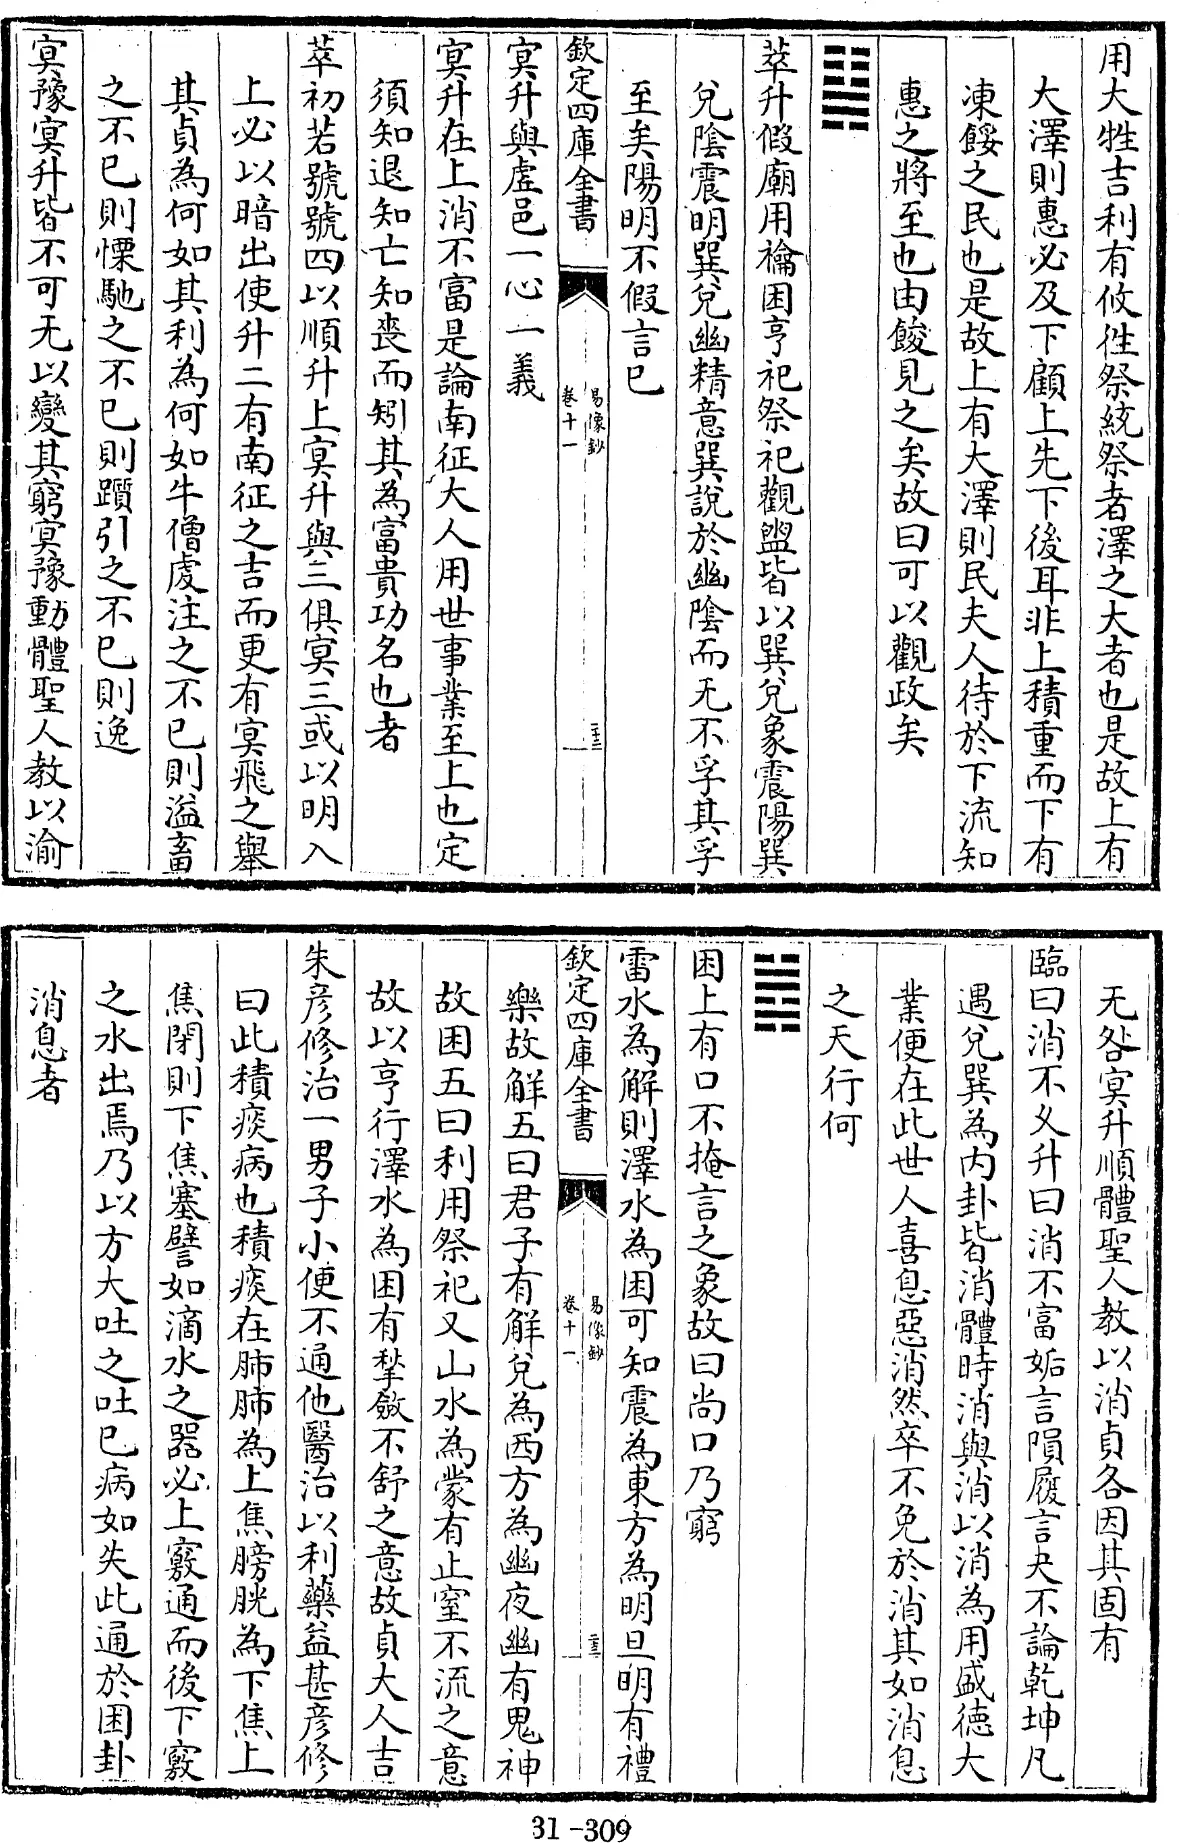 用大牲吉利有攸往祭統祭者澤之大者也是故上有
大澤則惠必及下顧上先下後耳非上積重而下有
凍餒之民也是故上有大澤則民夫人待於下流知
惠之將至也由餕見之矣故曰可以觀政矣
䷭
萃升假廟用禴困亨祀祭祀觀盥皆以巽兌象震陽巽
兌陰震明巽兌幽精意巽說於幽陰而无不孚其孚
至矣陽明不假言已
欽定四庫全書
易像鈔
卷十一
冥升與虛邑一心一義
冥升在上消不富是論南征大人用世事業至上也定
須知退知亡知喪而矧其為富貴功名也者
萃初若號號四以順升上冥升與三俱冥三或以明入
上必以暗出使升二有南征之吉而更有冥飛之舉
其貞為何如其利為何如牛僧虔注之不已則溢畜
之不已則慄馳之不已則躓引之不已則逸
冥豫冥升皆不可无以變其窮冥豫動體聖人教以渝
无咎冥升順體聖人教以消貞各因其固有
臨曰消不久升曰消不富姤言隕履言夬不論乾坤凡
遇兌巽為內卦皆消體時消與消以消為用盛德大
業便在此世人喜息惡消然卒不免於消其如消息
之天行何
䷮
困上有口不掩言之象故曰尚口乃窮
雷水為解則澤水為困可知震為東方為明旦明有禮
欽定四庫全書
易像鈔
卷十一
樂故解五曰君子有解兌為西方為幽夜幽有鬼神
故困五曰利用祭祀又山水為蒙有止窒不流之意
故以亨行澤水為困有揫斂不舒之意故貞大人吉
朱彦修治一男子小便不通他醫治以利藥益甚彦修
曰此積痰病也積痰在肺肺為上焦膀胱為下焦上
焦閉則下焦塞譬如滴水之器必上竅通而後下竅
之水出焉乃以方大吐之吐已病如失此通於困卦
消息者
31-309